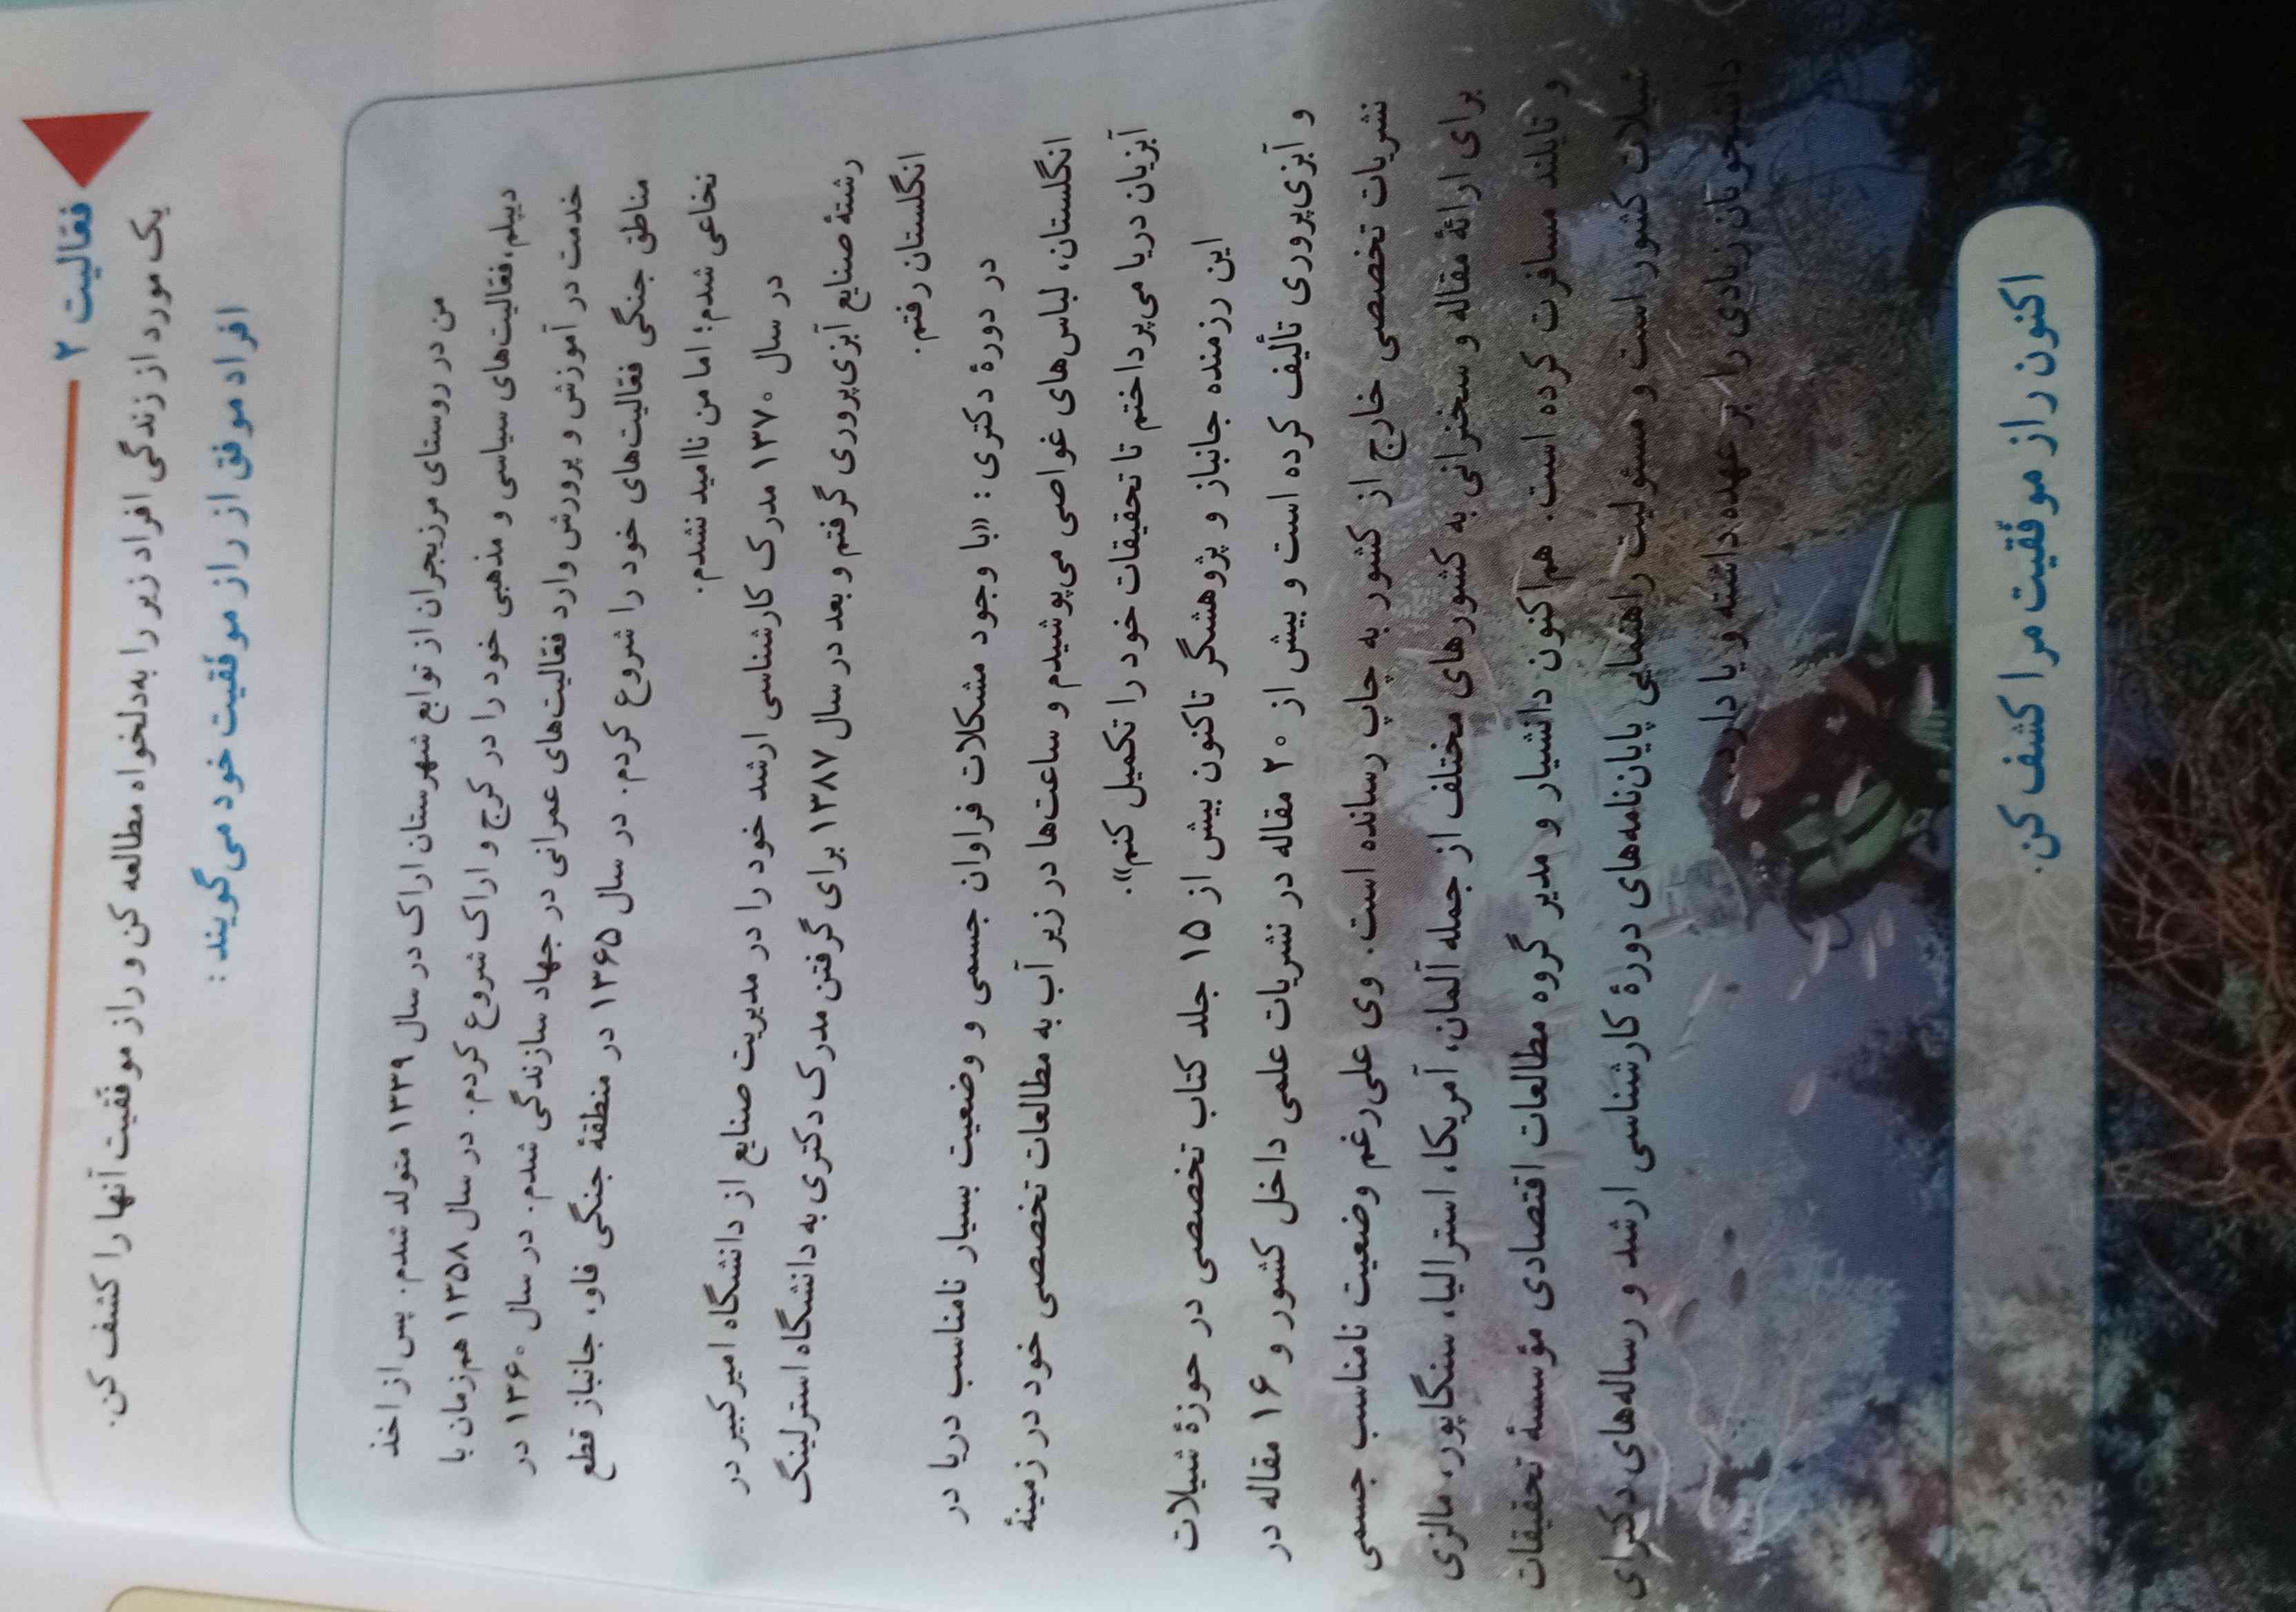 فعّالیت ۲
یک مورد از زندگی افراد زیر را به‌دلخواه مطالعه کن و راز موفّقیت آنها را کشف کن.
افراد موفق از راز موفّقیت خود می‌گویند :
من در روستای مرزیجران از توابع شهرستان اراک در سال ۱۳۳۹ متولد شدم. پس از اخذ
دیپلم، فعّالیت‌های سیاسی و مذهبی خود را در کرج و اراک شروع کردم. در سال ۱۳۵۸ هم‌زمان با
خدمت در آموزش و پرورش وارد فعّالیت‌های عمرانی در جهاد سازندگی شدم. در سال ۱۳۶۰ در
مناطق جنگی فعّالیت‌های خود را شروع کردم. در سال ۱۳۶۵ در منطقهٔ جنگی فاو، جانباز قطع
نخاعی شدم؛ اما من ناامید نشدم.
در سال ۱۳۷۰ مدرک کارشناسی ارشد خود را در مدیریت صنایع از دانشگاه امیرکبیر در
رشتهٔ صنایع آبزی‌پروری گرفتم و بعد در سال ۱۳۸۷ برای گرفتن مدرک دکتری به دانشگاه استرلینگ
انگلستان رفتم.
در دورهٔ دکتری : «با وجود مشکلات فراوان جسمی و وضعیت بسیار نامناسب دریا در
انگلستان، لباس‌های غواصی می‌پوشیدم و ساعت‌ها در زیر آب به مطالعات تخصصی خود در زمینهٔ
آبزیان دریا می‌پرداختم تا تحقیقات خود را تکمیل کنم».
این رزمنده جانباز و پژوهشگر تاکنون بیش از ۱۵ جلد کتاب تخصصی در حوزهٔ شیلات
و آبزی‌پروری تألیف کرده است و بیش از ۲۰ مقاله در نشریات علمی داخل کشور و ۱۶ مقاله در
نشریات تخصصی خارج از کشور به چاپ رسانده است. وی علی‌رغم وضعیت نامناسب جسمی
برای ارائهٔ مقاله و سخنرانی به کشورهای مختلف از جمله آلمان، آمریکا، استرالیا، سنگاپور، مالزی
و تایلند مسافرت کرده است. هم‌اکنون دانشیار و مدیر گروه مطالعات اقتصادی مؤسسهٔ تحقیقات
شیلات کشور است و مسئولیت راهنمایی پایان‌نامه‌های دورهٔ کارشناسی ارشد و رساله‌های دکترای
دانشجویان زیادی را بر عهده داشته و یا دارد.
اکنون راز موفّقیت مرا کشف کن.